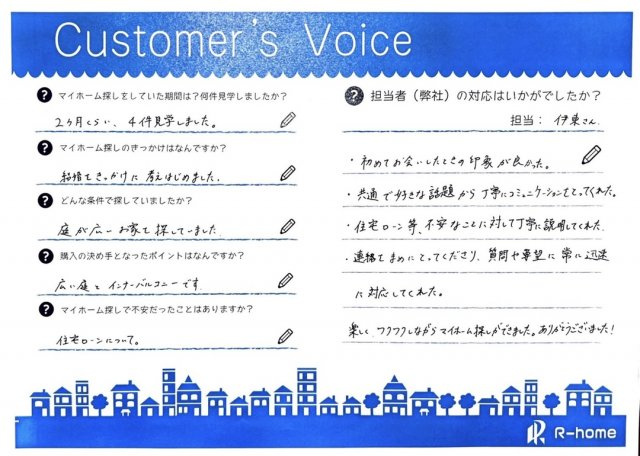 Customer's Voice
? マイホーム探しをしていた期間は？何件見学しましたか？
2ヶ月くらい、4件見学しました。
? マイホーム探しのきっかけはなんですか？
結婚をきっかけに考えはじめました。
? どんな条件で探していましたか？
庭が広いお家を探していました。
? 購入の決め手となったポイントはなんですか？
広い庭とインナーバルコニーです。
? マイホーム探しで不安だったことはありますか？
住宅ローンについて。
? 担当者（弊社）の対応はいかがでしたか？
担当： 伊東さん
・初めてお会いしたときの印象が良かった。
・共通で好きな話題から丁寧にコミュニケーションをとってくれた。
・住宅ローン等、不安なことに対して丁寧に説明してくれた。
・連絡をまめにとってくださり、質問や要望に常に迅速
に対応してくれた。
楽しくワクワクしながらマイホーム探しができました。ありがとうございました！
R-home